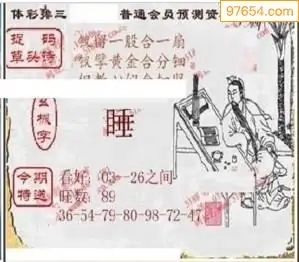 97654.com
体彩排三 普通会员预测赞
捉码
草头诗
钗留一股合一扇
钗擘黄金合分钿
玄机字
睡
今期
特送
看好：03-26之间
旺数：89
36-54-79-80-98-72-47